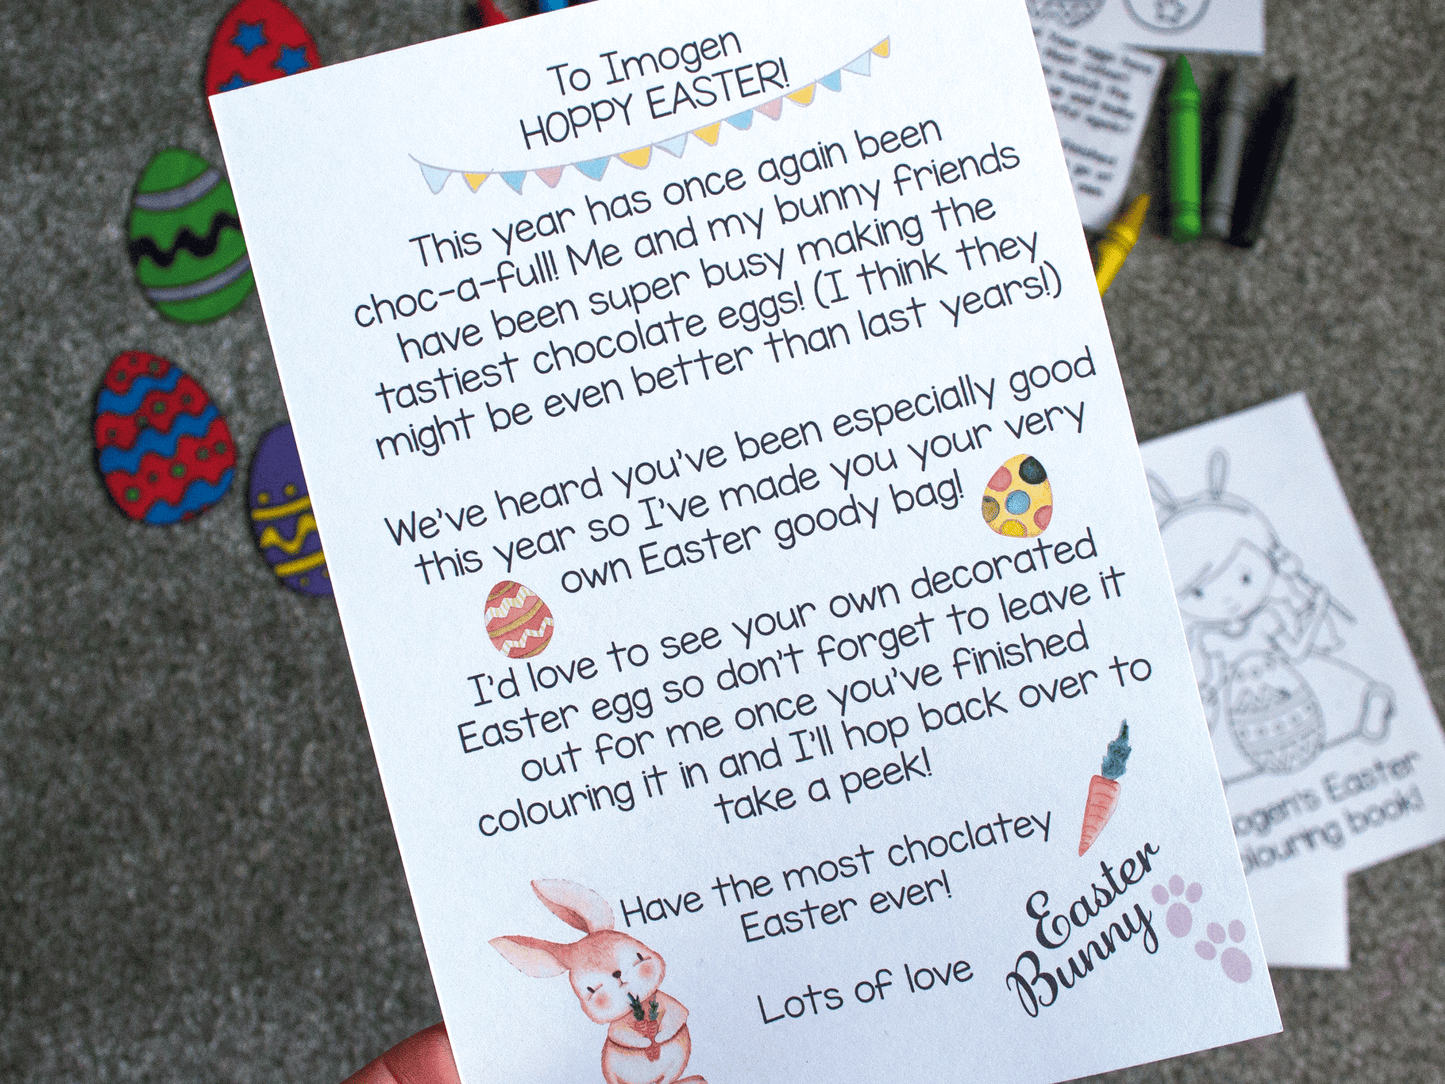 To Imogen
HOPPY EASTER!
This year has once again been
choc-a-full! Me and my bunny friends
have been super busy making the
tastiest chocolate eggs! (I think they
might be even better than last years!)
We've heard you've been especially good
this year so I've made you your very
own Easter goody bag!
I'd love to see your own decorated
Easter egg so don't forget to leave it
out for me once you've finished
colouring it in and I'll hop back over to
take a peek!
Have the most choclatey
Easter ever!
Lots of love
Easter
Bunny
ogen's Easter
olouring book!